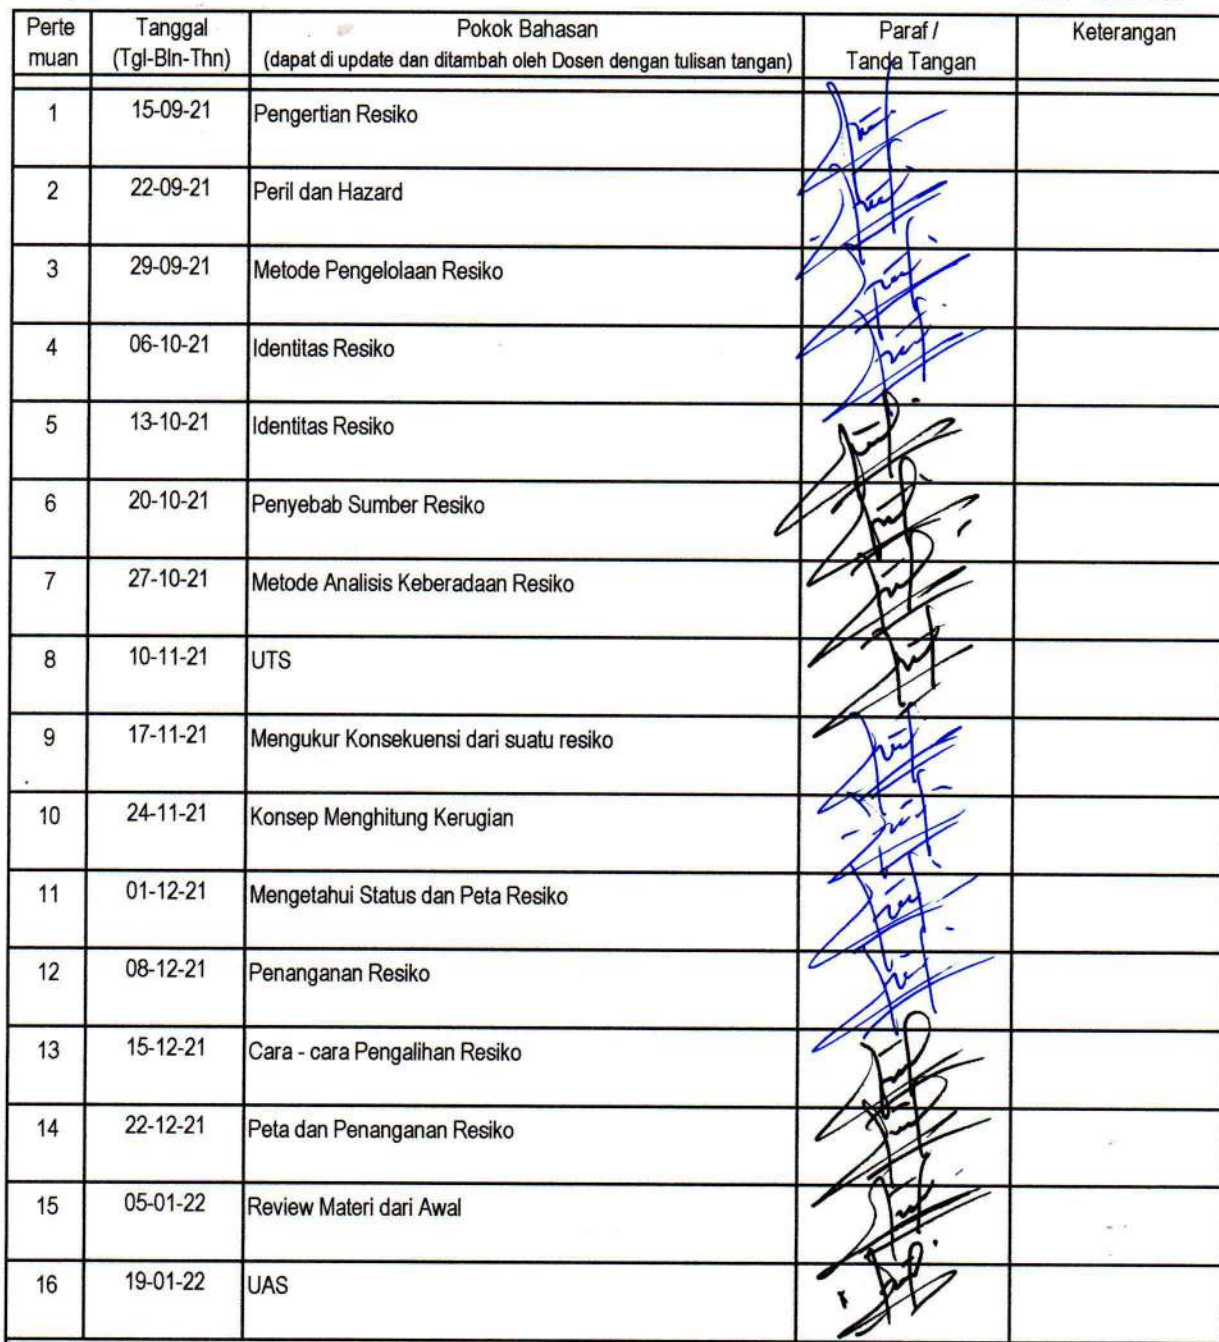 Perte muan Tanggal (Tgl-Bln-Thn) Pokok Bahasan (dapat di update dan ditambah oleh Dosen dengan tulisan tangan) Paraf / Tanda Tangan Keterangan
1 15-09-21 Pengertian Resiko
2 22-09-21 Peril dan Hazard
3 29-09-21 Metode Pengelolaan Resiko
4 06-10-21 Identitas Resiko
5 13-10-21 Identitas Resiko
6 20-10-21 Penyebab Sumber Resiko
7 27-10-21 Metode Analisis Keberadaan Resiko
8 10-11-21 UTS
9 17-11-21 Mengukur Konsekuensi dari suatu resiko
10 24-11-21 Konsep Menghitung Kerugian
11 01-12-21 Mengetahui Status dan Peta Resiko
12 08-12-21 Penanganan Resiko
13 15-12-21 Cara - cara Pengalihan Resiko
14 22-12-21 Peta dan Penanganan Resiko
15 05-01-22 Review Materi dari Awal
16 19-01-22 UAS